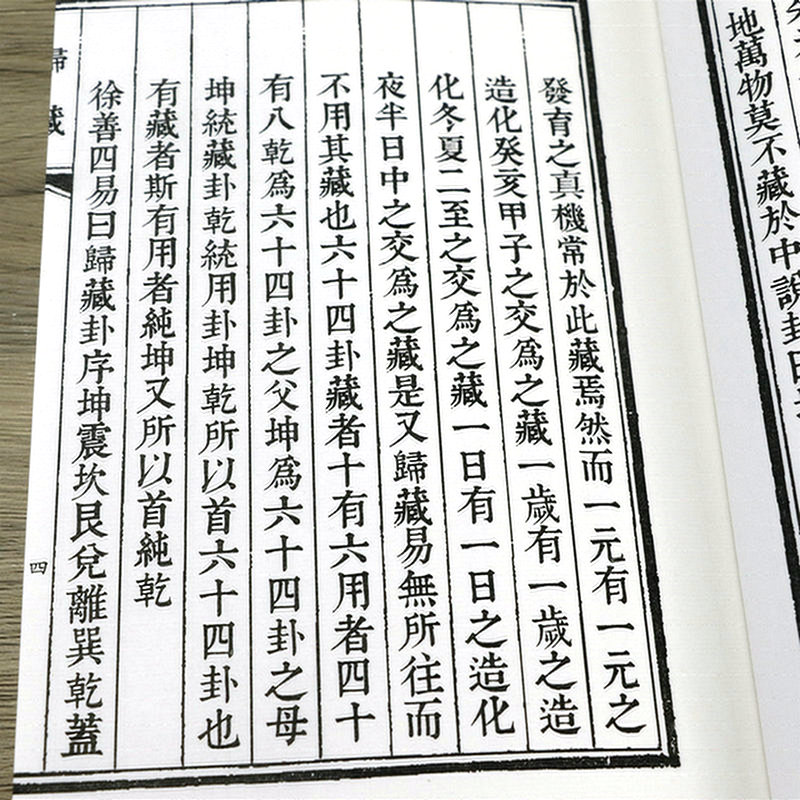 地萬物莫不藏於中說卦曰
發育之真機常於此藏焉然而一元有一元之
造化癸亥甲子之交爲之藏一歲有一歲之造
化冬夏二至之交爲之藏一日有一日之造化
夜半日中之交爲之藏是又歸藏易無所往而
不用其藏也六十四卦藏者十有六用者四十
有八乾爲六十四卦之父坤爲六十四卦之母
坤統藏卦乾統用卦坤乾所以首六十四卦也
有藏者斯有用者純坤又所以首純乾
徐善四易曰歸藏卦序坤震坎艮兌離巽乾蓋
歸藏
四